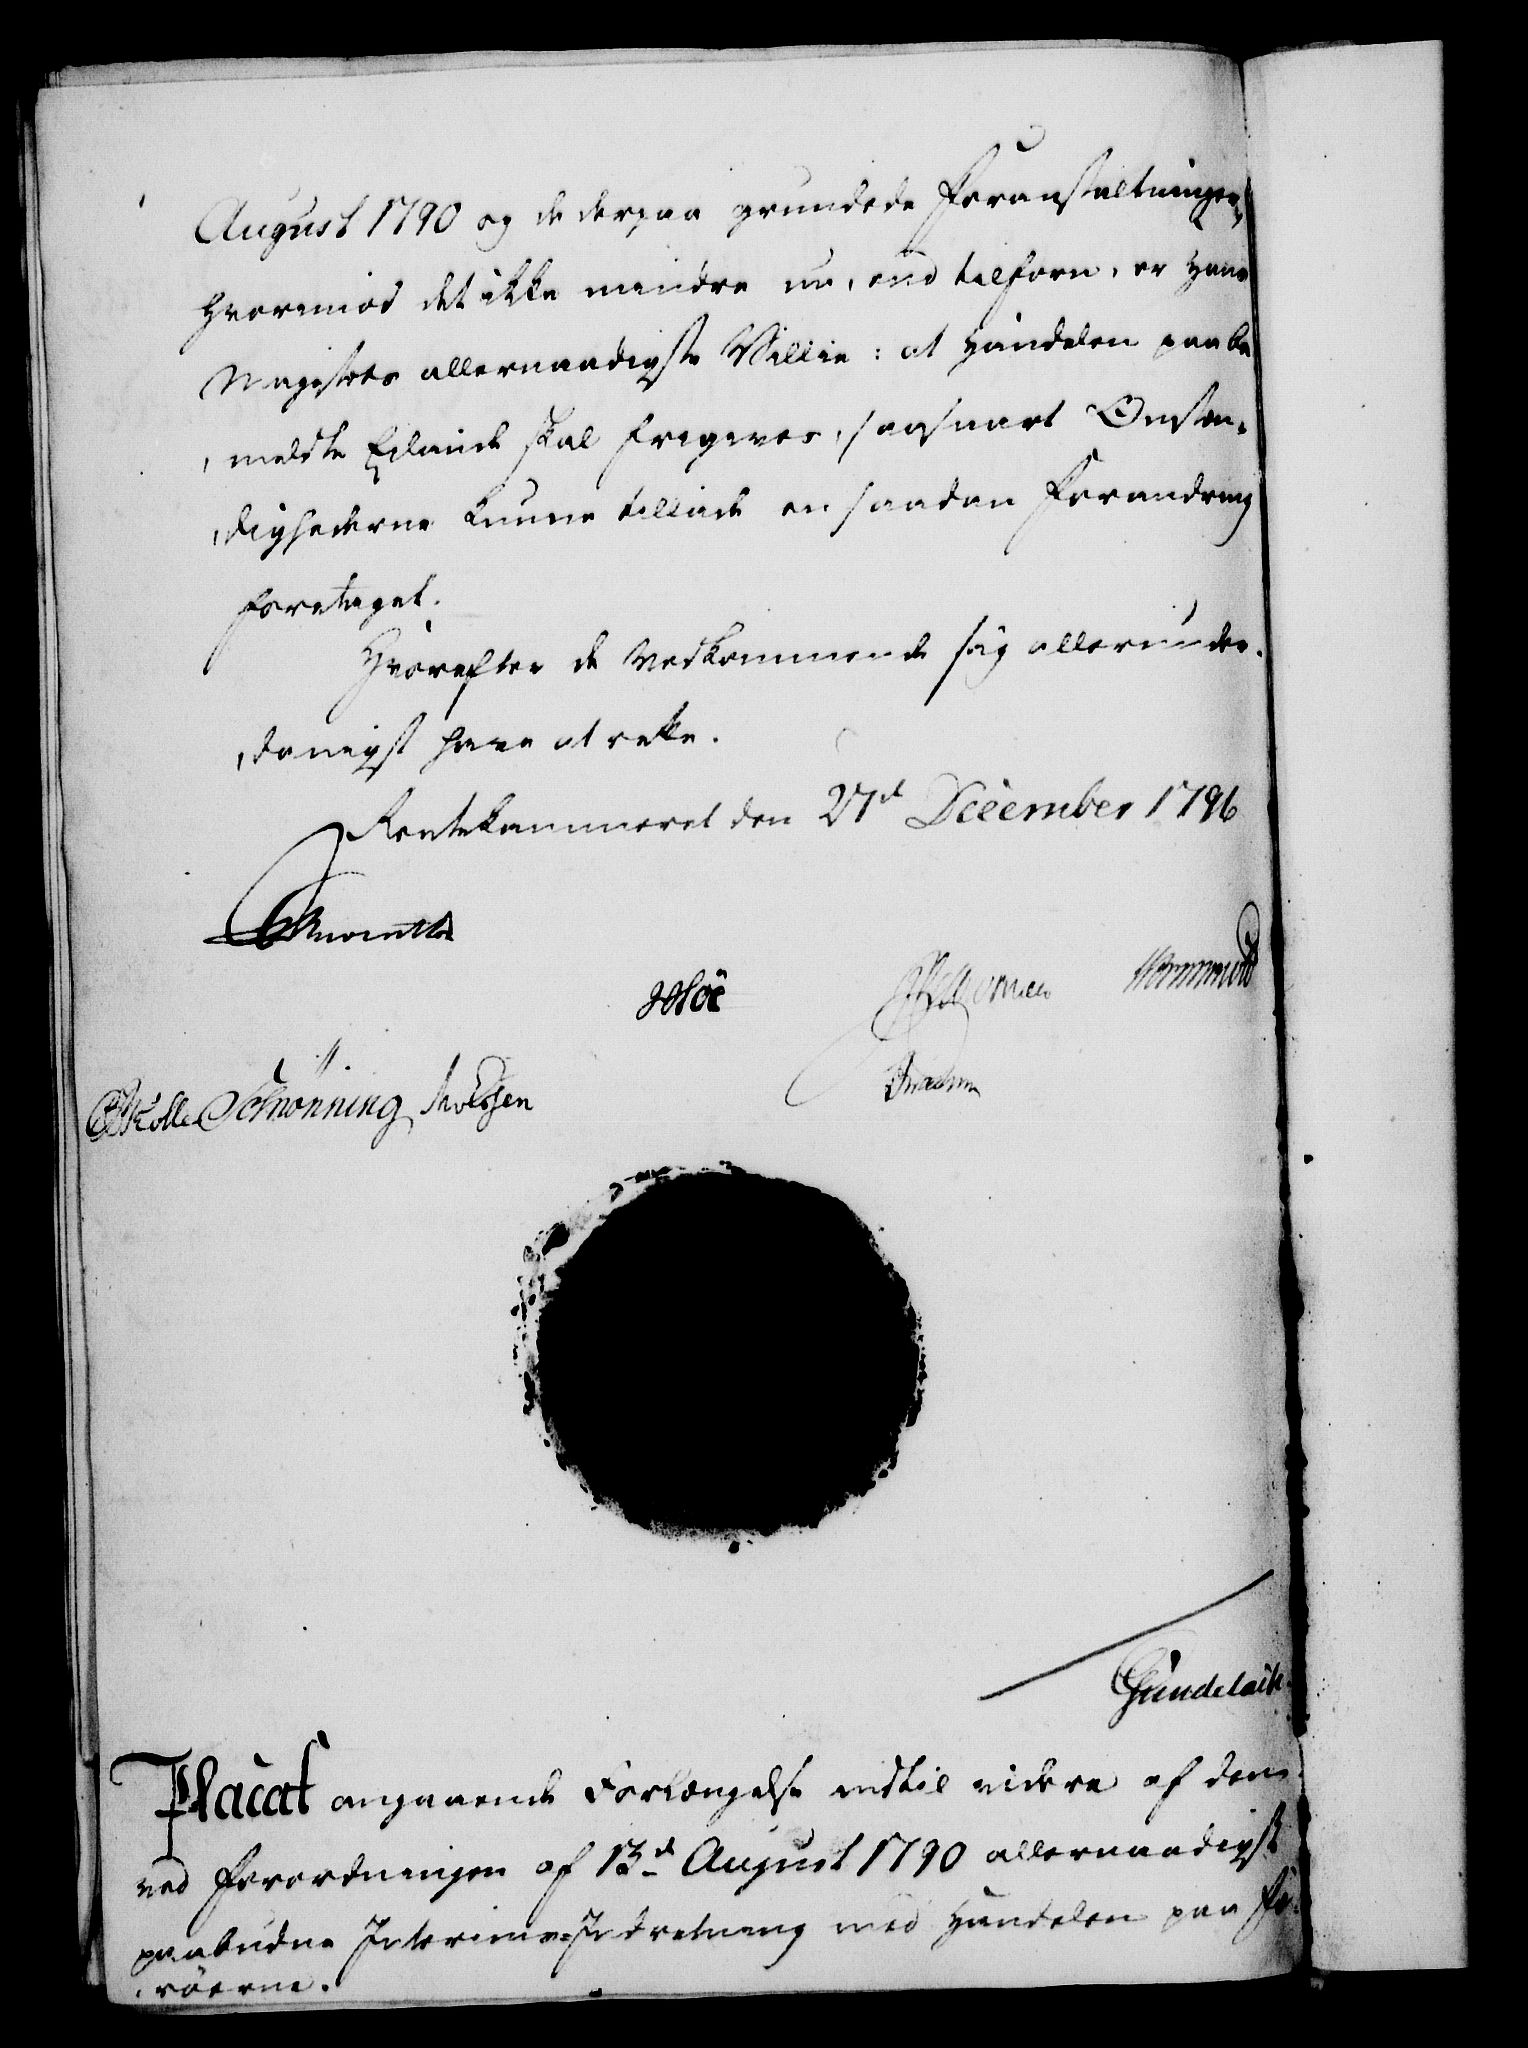 August 1790 og de derpaa grundede Foranstaltninger,
hvorimod det ikke mindre nu, end tilforn, er Hans
Majestæts allernaadigste Villie: at Handelen paa be
meldte Eilande skal frigives, saasnart Omstæn-
dighederne kunne tillade en saadan Forandring
foretaget.
Hvorefter de Vedkommende sig allerunder-
danigst have at rette.
Rentekammeret den 27d December 1796
Hammond
Schrønning
Gundelach
Placat angaaende Forlængelse indtil videre af den
ved Forordningen af 13d August 1790 allernaadigst
paabudne Interims-Indretning med Handelen paa Fæ-
röerne.